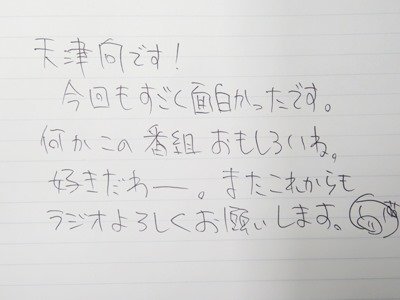 天津向です！
今回もすごく面白かったです。
何かこの番組おもしろいね。
好きだわー。またこれからも
ラジオよろしくお願いします。